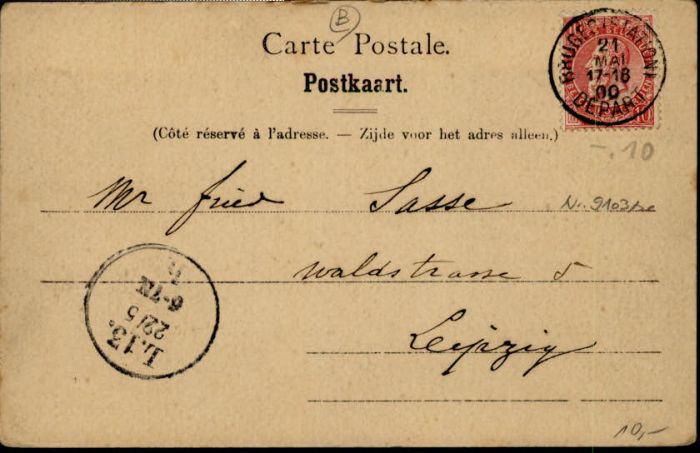 B
Carte Postale.
Postkaart.
(Côté réservé à l'adresse. — Zijde voor het adres alleen.)
BRUGES (STATION)
21
MAI
17-18
00
DEPART
10
-.10
Mr fried Sasse
Waldstrasse 5
Leipzig
L.13.
22/5
6-7N
10,-